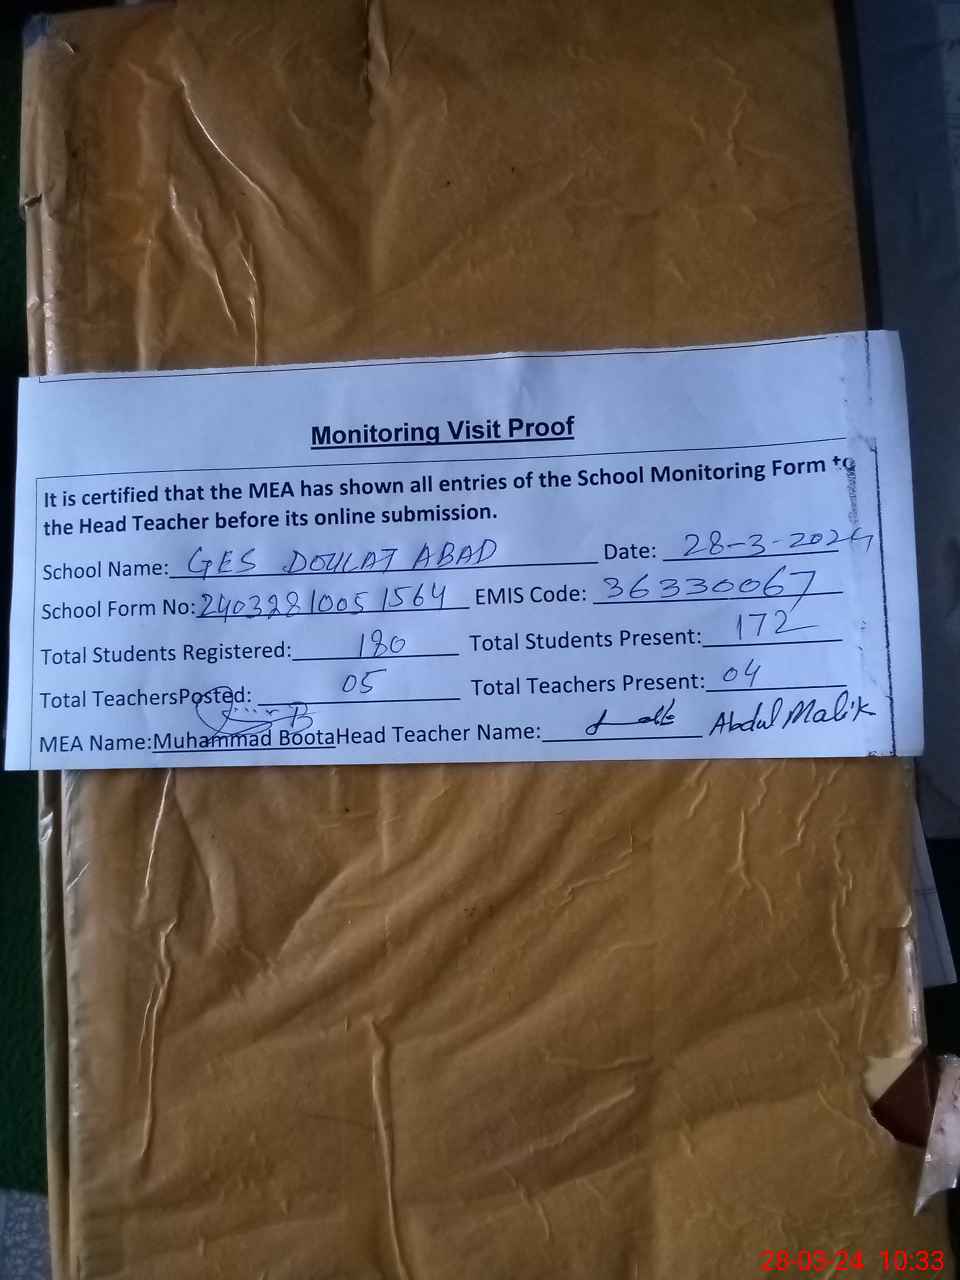 Monitoring Visit Proof
It is certified that the MEA has shown all entries of the School Monitoring Form to
the Head Teacher before its online submission.
School Name: GES DOULAT ABAD Date: 28-3-2024
School Form No: 2403281005 1564 EMIS Code: 36330067
Total Students Registered: 180 Total Students Present: 172
Total TeachersPosted: 05 Total Teachers Present: 04
MEA Name:Muhammad BootaHead Teacher Name: Abdul Malik
28-03-24 10:33